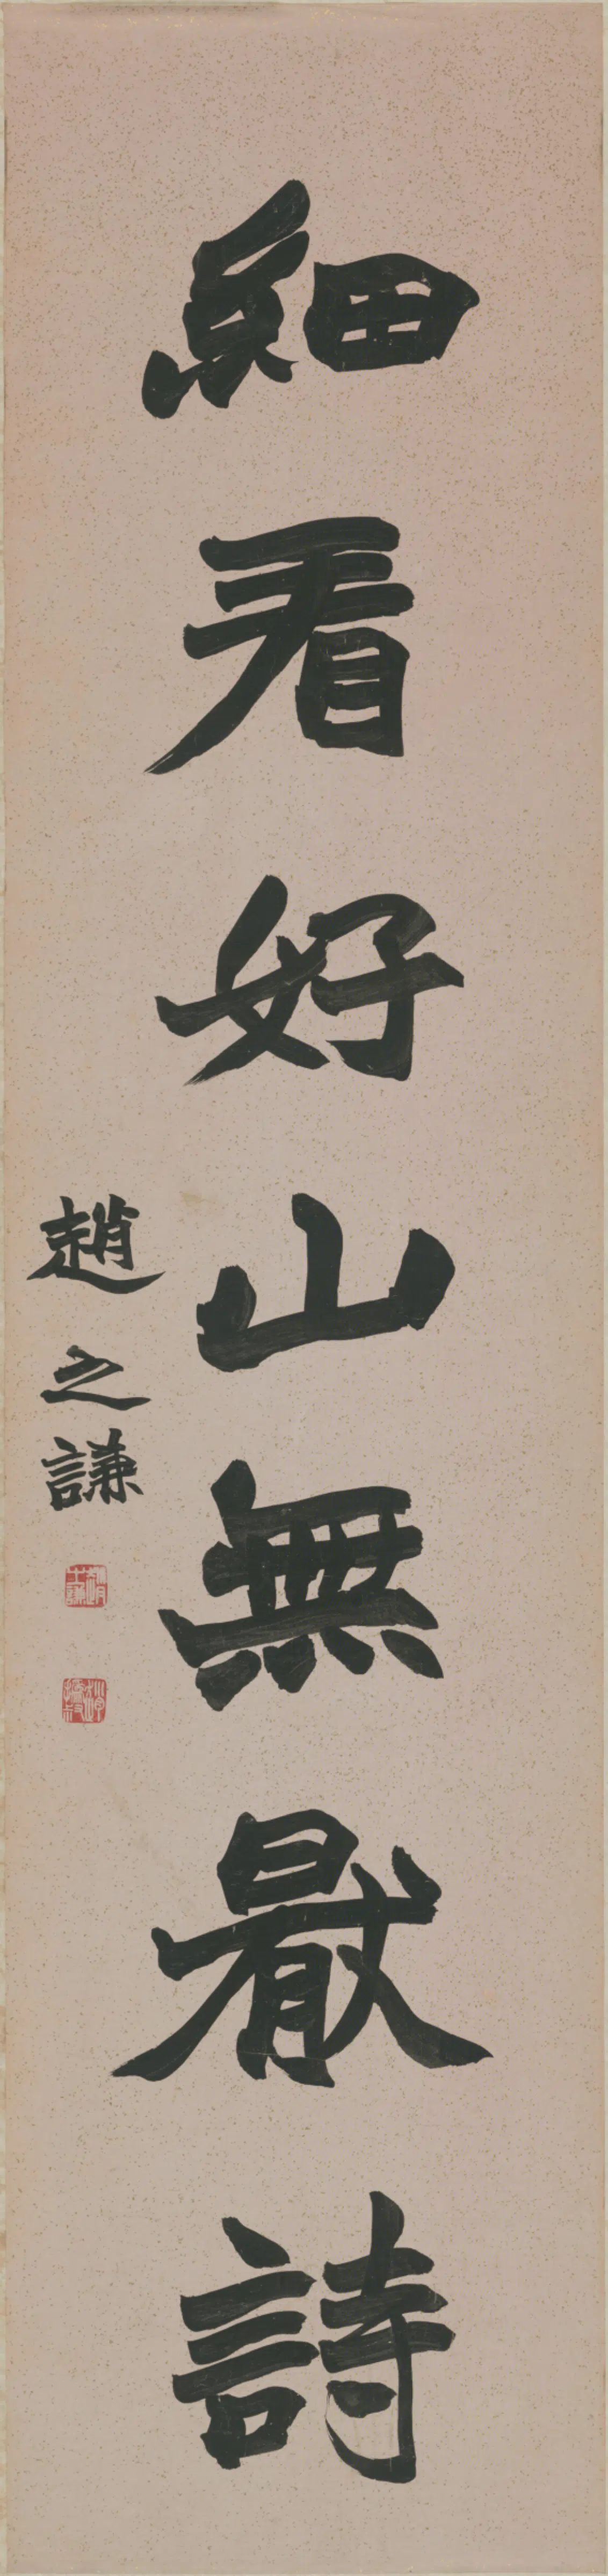 細看好山無厭詩
趙之謙